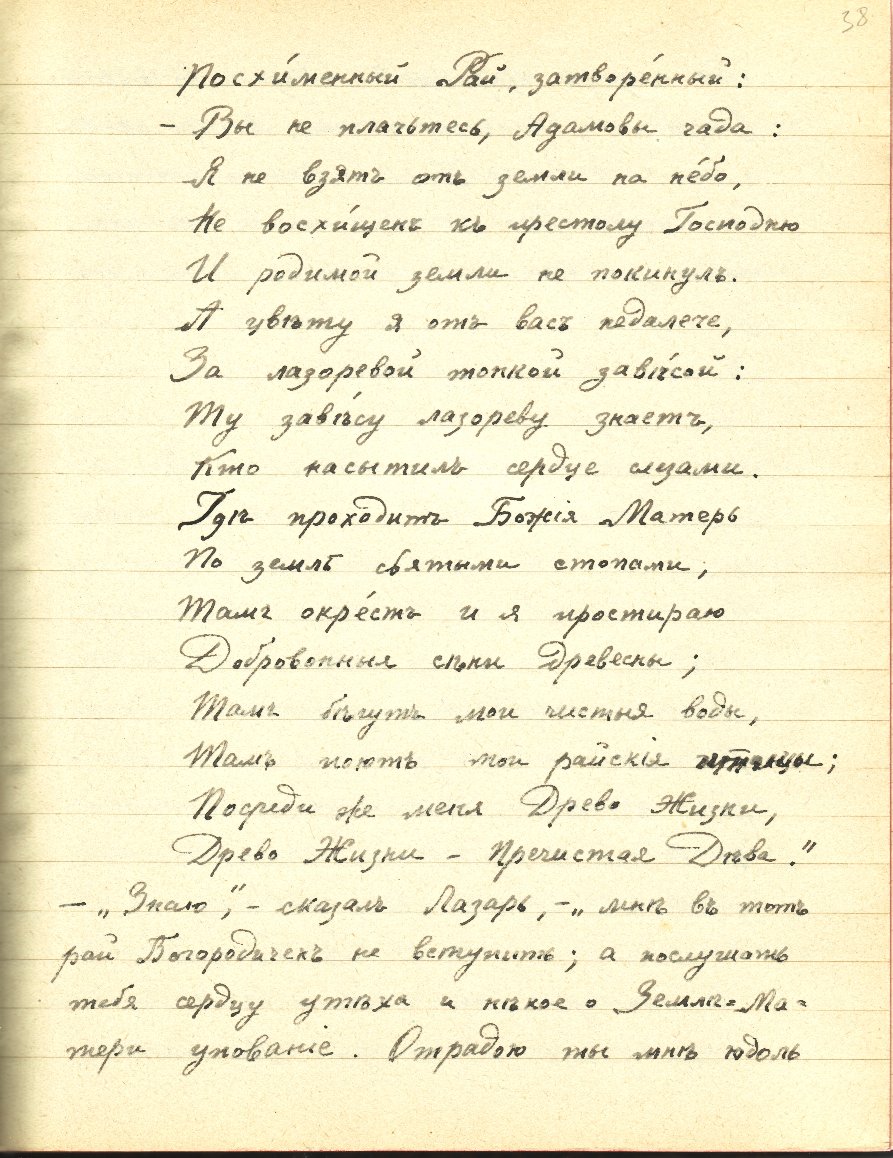 38
Посхи́менный Рай, затворе́нный:
– Вы не плачьтесь, Адамовы чада:
Я не взятъ отъ земли на не́бо,
Не восхи́щенъ къ престолу Господню
И родимой земли не покинулъ.
А цвѣту я отъ васъ недалече,
За лазоревой тонкой завѣ́сой:
Ту завѣ́су лазореву знаетъ,
Кто насытилъ сердце слезами.
Гдѣ проходитъ Божія Матерь
По землѣ святыми стопами,
Тамъ окре́стъ и я простираю
Добровонныя сѣни древесны;
Тамъ бѣгутъ мои чистыя воды,
Тамъ поютъ мои райскія птицы;
Посреди же меня Древо Жизни,
Древо Жизни – Пречистая Дѣва."
– „Знаю", – сказалъ Лазарь, – „мнѣ въ тотъ
рай Богородиченъ не вступить; а послушать
тебя сердцу утѣха и нѣкое о Землѣ=Ма=
тери упованіе. Отрадою ты мнѣ юдоль